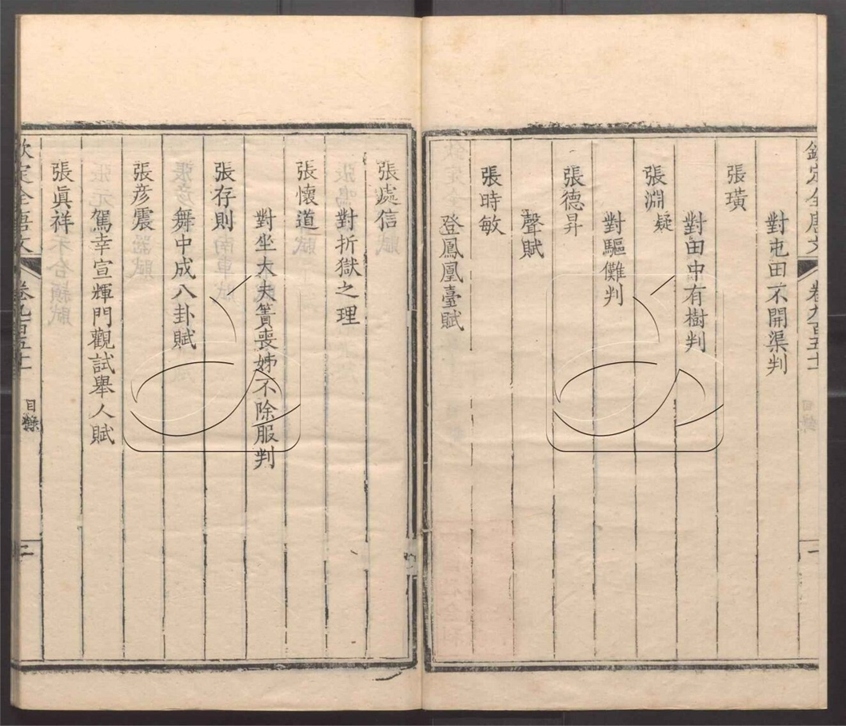 欽定全唐文 卷九百五十一 目錄 一
對屯田不開渠判
張璜
對田中有樹判
張淵疑
對驅儺判
張德昇
聲賦
張時敏
登鳳凰臺賦
張處信
對折獄之理
張懷道
對坐大夫簀喪姊不除服判
張存則
舞中成八卦賦
張彦震
駕幸宣輝門觀試舉人賦
張眞祥
欽定全唐文 卷九百五十一 目錄 二